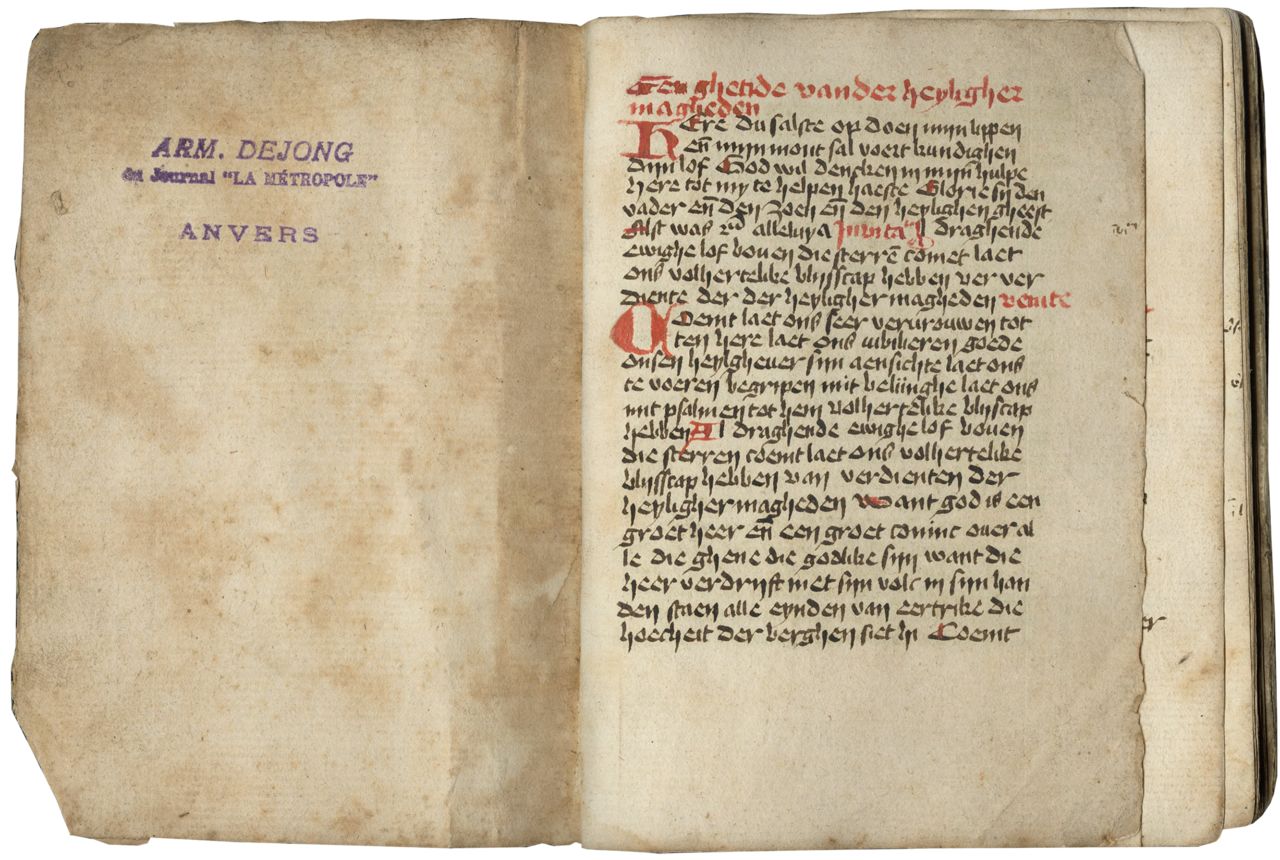 ARM. DEJONG
du Journal "LA MÉTROPOLE"
ANVERS
Een ghetide vander heyligher
magheden
Here du salste op doen mijn lippen
eñ mijn mont sal voert kundighen
dijn lof God wil dencken in mijn hulpe
here tot my te helpen haeste Glorie sij den
vader eñ den zoen eñ den heylighen gheest
Alst was alleluya Invita Al draghende
ewighe lof boven die sterrē comet laet
ons volhertelike blijsscap hebben ver ver
diente der der heyligher magheden venite
Coemt laet ons seer vervrouwen tot
ten here laet ons iubilieren goede
onsen heylghever sijn aensichte laet ons
te voeren begripen mit beliinghe laet ons
mit psalmen tot hem volhertelike blijscap
hebben Al draghende ewighe lof boven
die sterren coemt laet ons volhertelike
blijsscap hebben van verdienten der
heyligher magheden Want god is een
groet heer eñ een groet coninc over al
le die ghene die godlike sijn want die
heer verdrijft niet sijn volc in sijn han
den staen alle eynden van eertrike die
hoecheit der berghen siet hi Coemt